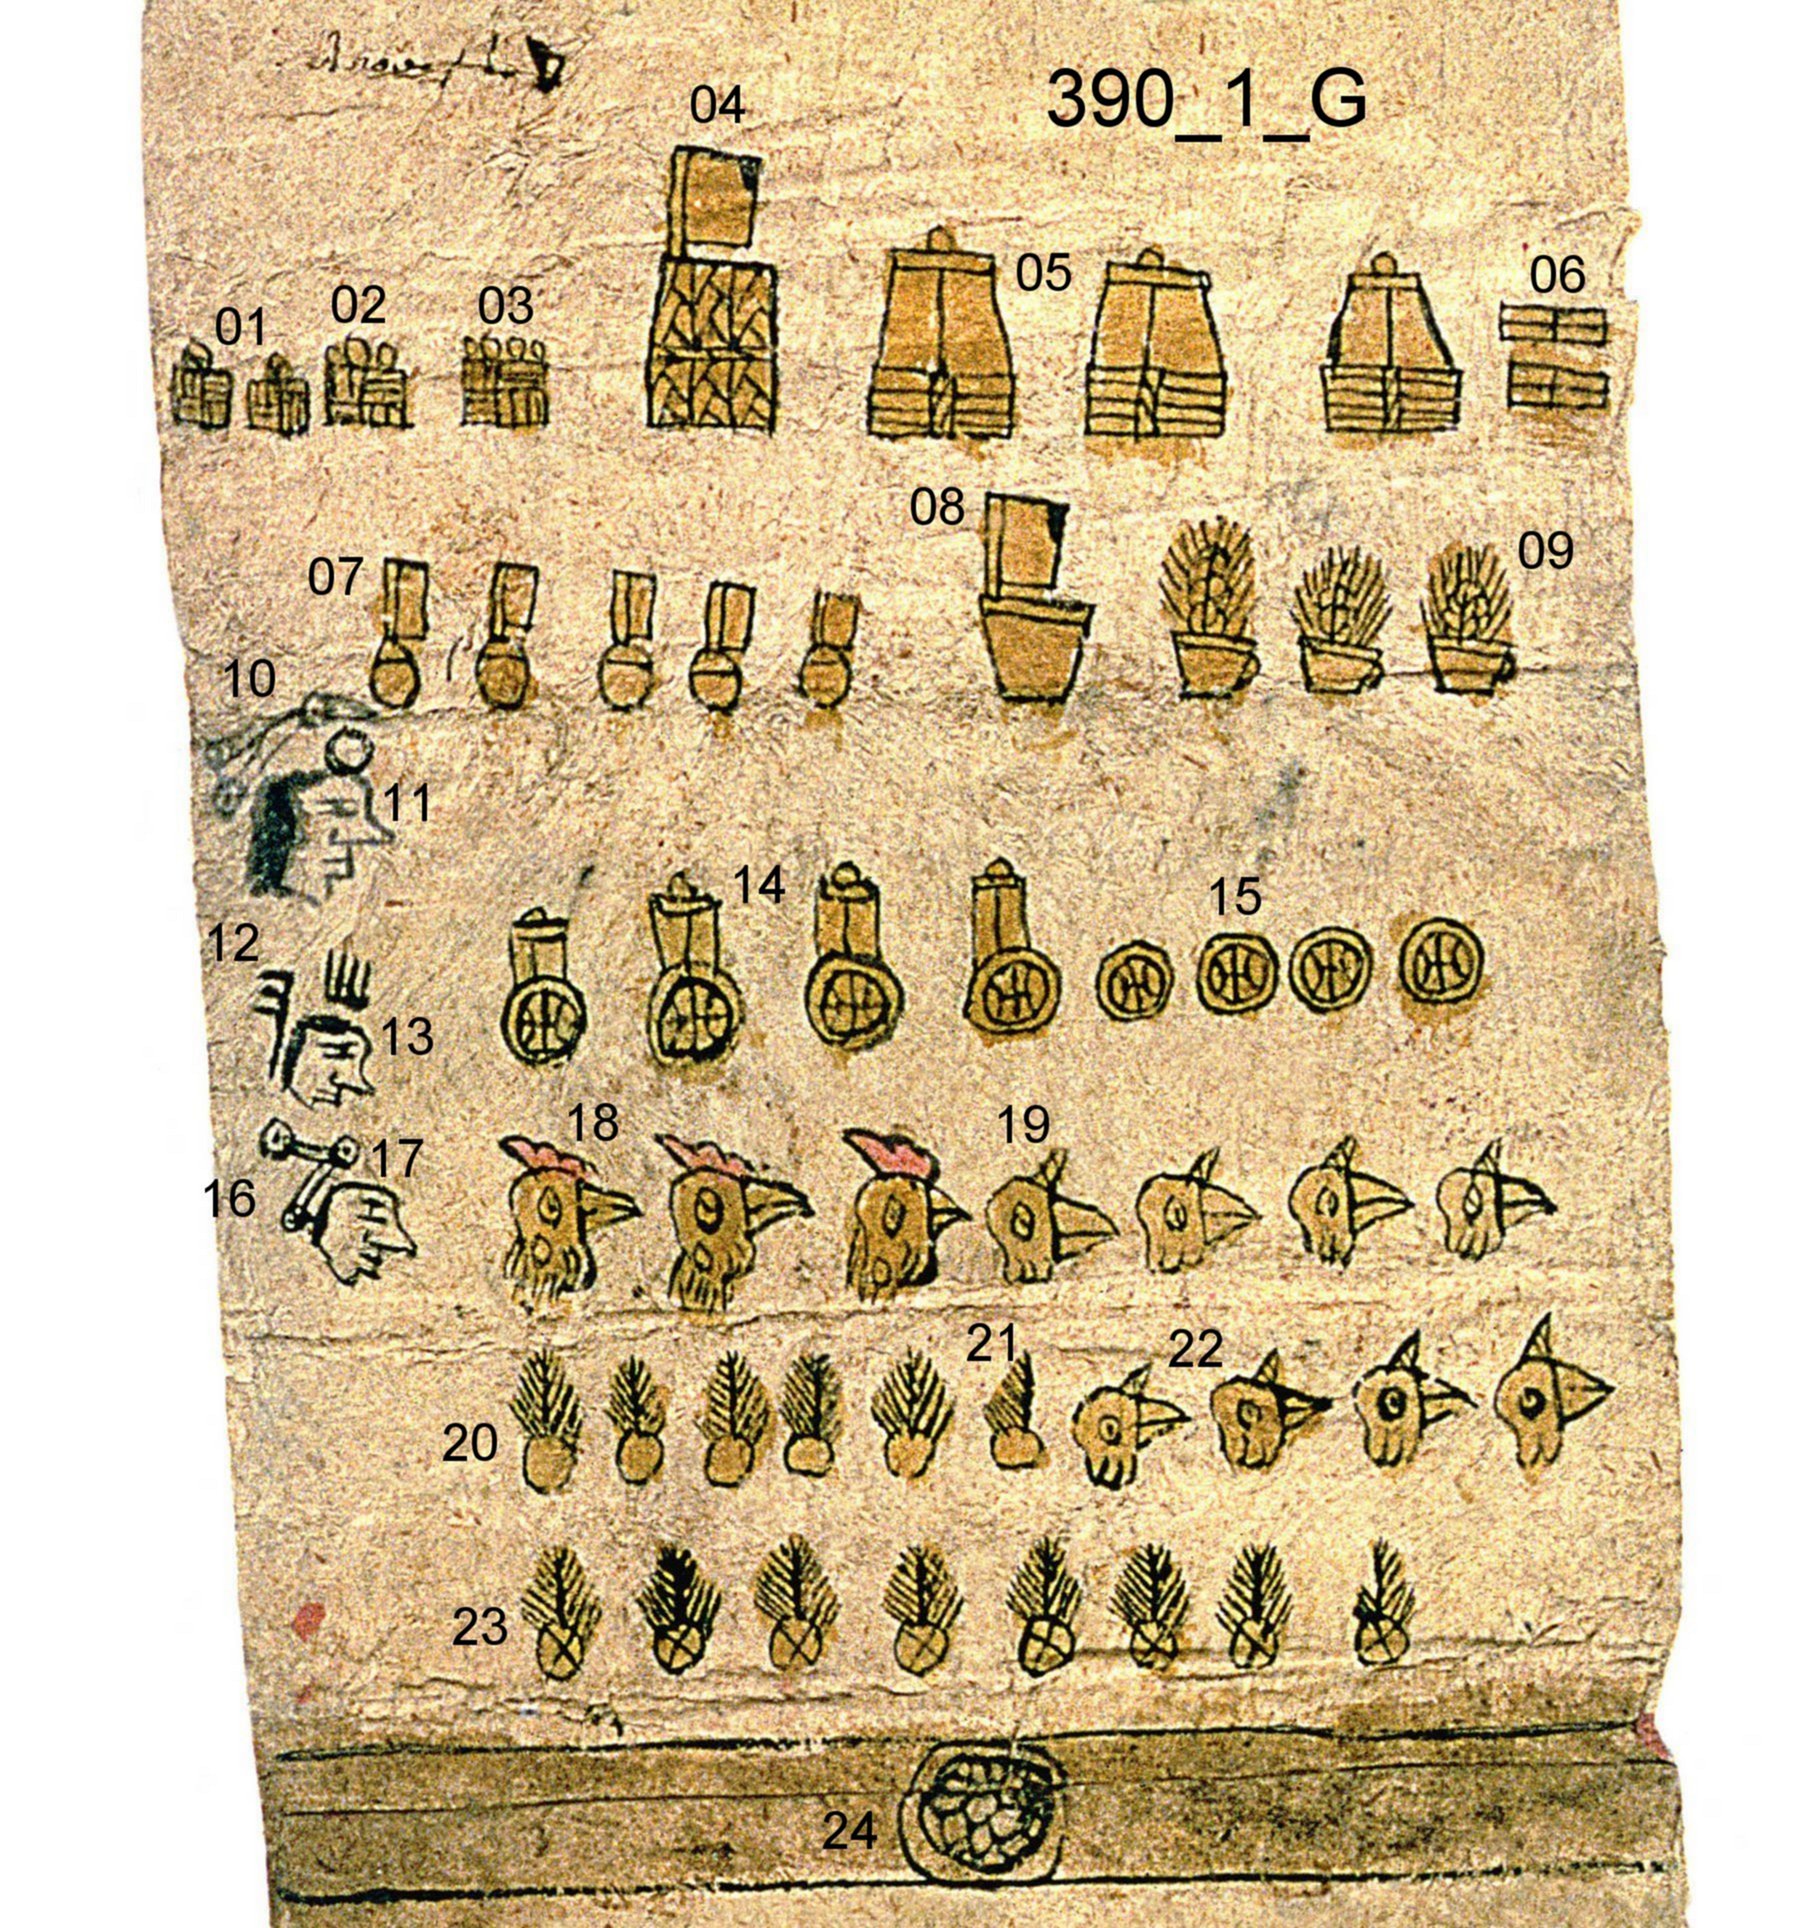 390_1_G
04
05
06
01
02
03
08
09
07
10
11
14
15
12
13
18
19
17
16
21
22
20
23
24